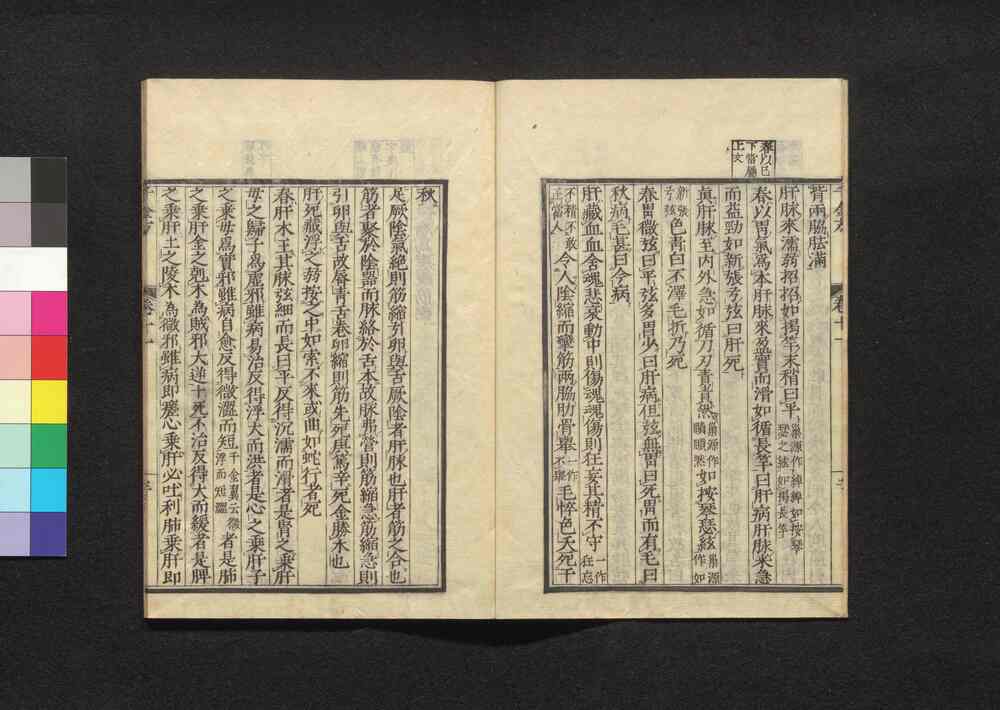 春以已
下當屬
上文
背兩脇胠滿
肝脉來濡弱招招如揭竿末稍曰平巢源作綽綽如按琴
瑟之絃如揭長竿
春以胃氣爲本肝脉來盈實而滑如循長竿曰肝病肝脉來急
而益勁如新張弓弦曰肝死
真肝脉至内外急如循刀刃責責然巢源作
賾賾然如按琴瑟絃巢源
作如
新張
弓弦色青白不澤毛折乃死
春胃微弦曰平弦多胃少曰肝病但弦無胃曰死胃而有毛曰
秋病毛甚曰今病
肝藏血血舍魂悲哀動中則傷魂魂傷則狂妄其精不守一作
狂忘
不精不敢
正當人令人陰縮而攣筋兩脇肋骨舉一作
不舉毛悴色夭死于
秋
足厥陰氣絶則筋縮引卵與舌厥陰者肝脉也肝者筋之合也
筋者聚於陰器而脉絡於舌本故脉弗營則筋縮急筋縮急則
引卵與舌故脣青舌卷卵縮則筋先死庚篤辛死金勝木也
肝死藏浮之弱按之中如索不來或曲如蛇行者死
春肝木王其脉弦細而長曰平反得沉濡而滑者是腎之乘肝
母之歸子爲虚邪雖病易治反得浮大而洪者是心之乘肝子
之乘母爲實邪雖病自愈反得微澀而短千金翼云微
浮而短澀者是肺
之乘肝金之剋木爲賊邪大逆十死不治反得大而緩者是脾
之乘肝土之陵木爲微邪雖病即瘥心乘肝必吐利肺乘肝即